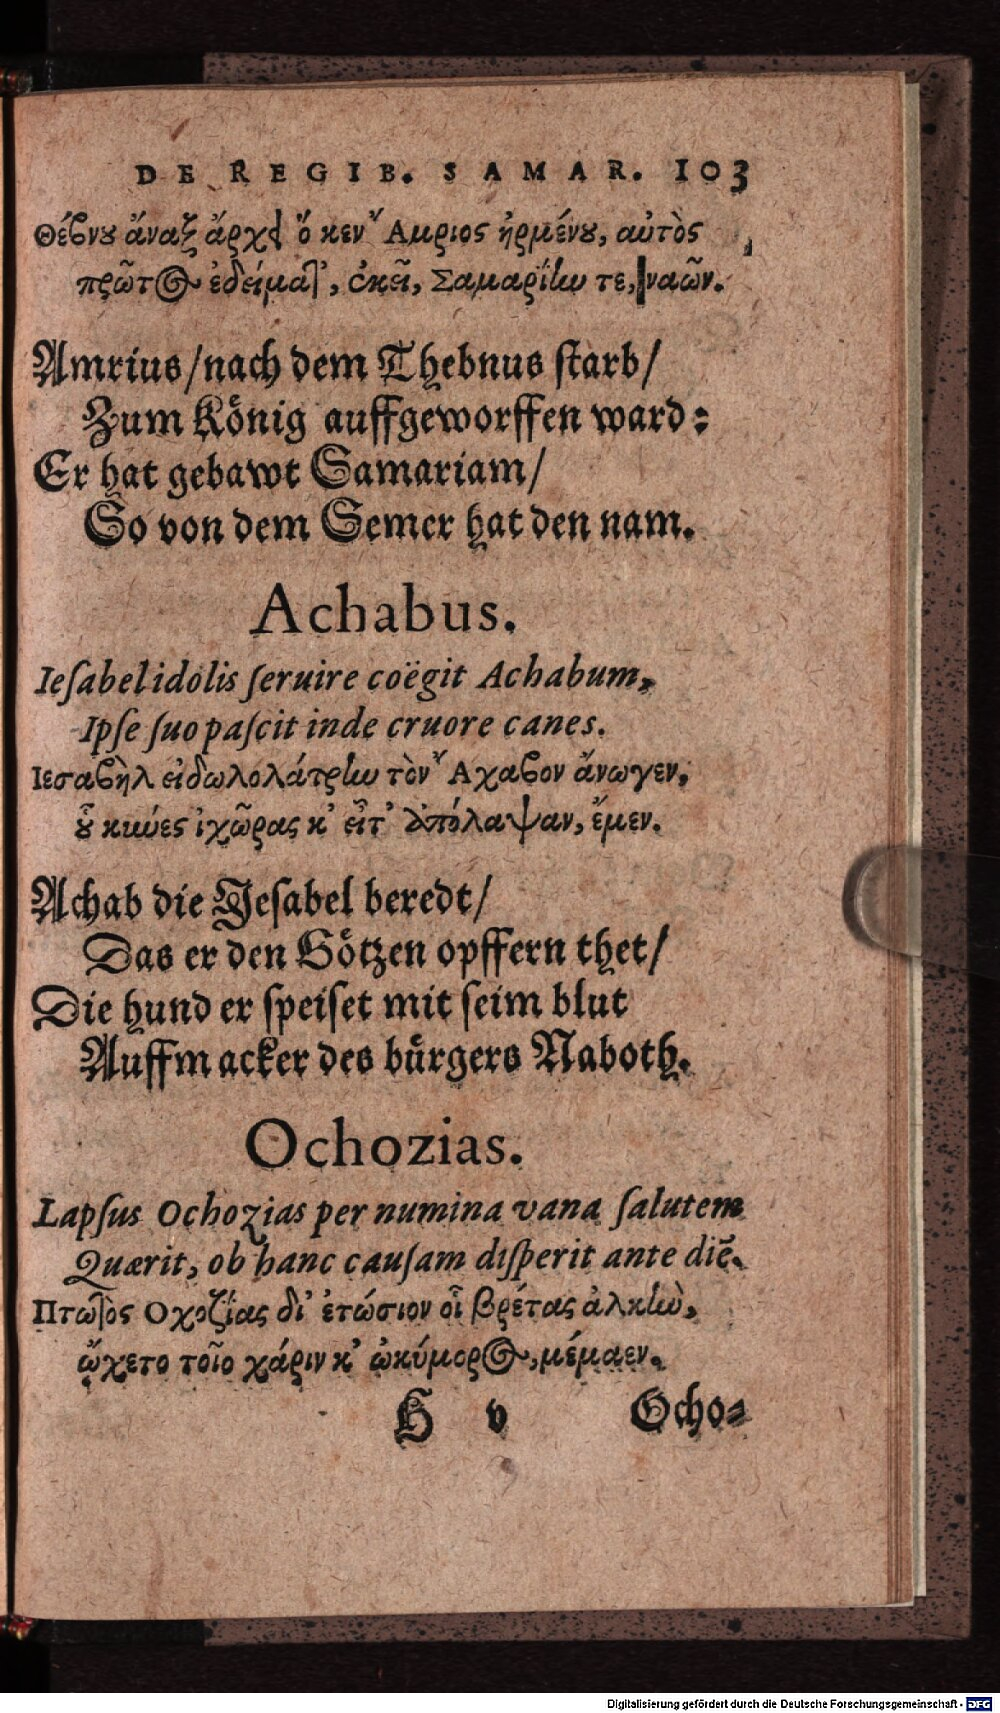 DE REGIB. SAMAR. 103
Θέβνου ἄναξ ἄρχει ὅ κεν Ἄμριος ἠρμένου, αὐτὸς
πρῶτος ἐδείματ', ἐκεῖ, Σαμαρίην τε, ναῶν.
Amrius/nach dem Thebnus starb/
Zum König auffgeworffen ward:
Er hat gebawt Samariam/
So von dem Semer hat den nam.
Achabus.
Iesabel idolis seruire coëgit Achabum,
Ipse suo pascit inde cruore canes.
Ιεσαβὴλ εἰδωλολάτρην τὸν Ἄχαβον ἄνωγεν,
οὗ κύνες ἰχῶρας κ' εἶτ' ἀπόλαψαν, ἔμεν.
Achab die Jesabel beredt/
Das er den Götzen opffern thet/
Die hund er speiset mit seim blut
Auffm acker des bürgers Naboth.
Ochozias.
Lapsus Ochozias per numina vana salutem
Quærit, ob hanc causam disperit ante diē.
Πτωτὸς Οχοζίας δι' ἐτώσιον οἷ βρέτας ἀλκὴν,
ᾤχετο τοῖο χάριν κ' ὠκύμορος, μέμαεν.
G v Ocho-
Digitalisierung gefördert durch die Deutsche Forschungsgemeinschaft - DFG